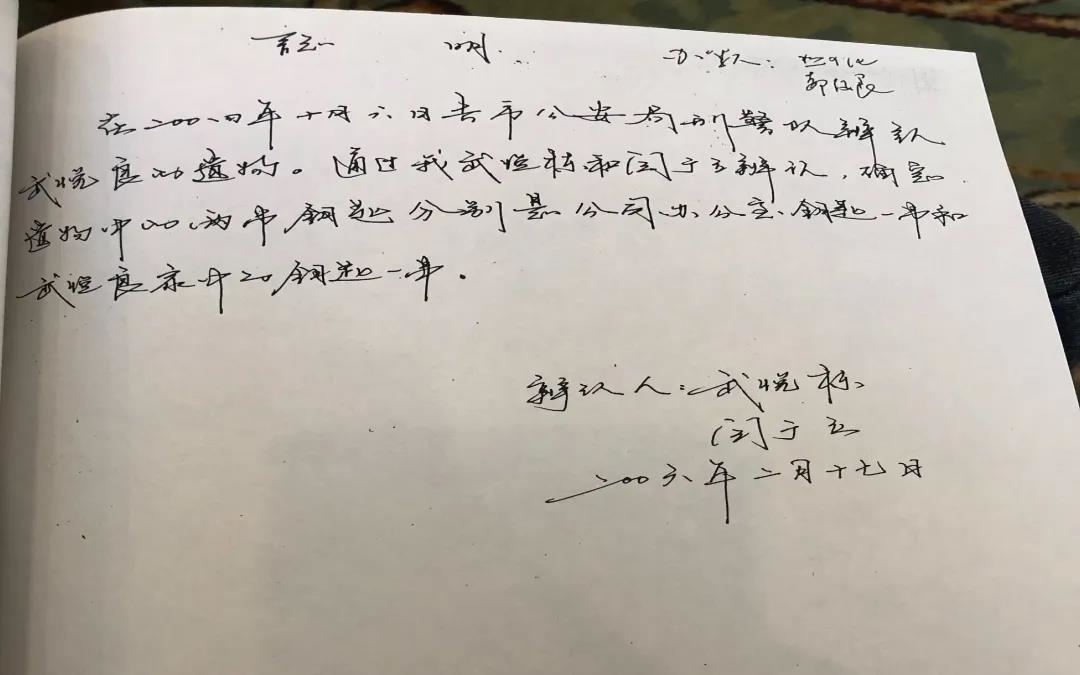 证 明
办案人:
在二00四年十月六日去市公安局刑警队辨认
武悦良的遗物。通过我武悦标和闫于立辨认,确忘
遗物中的两串钥匙分别是公司办公室钥匙一串和
武悦良家中的钥匙一串。
辩认人:武悦标
闫于立
二00六年二月十七日